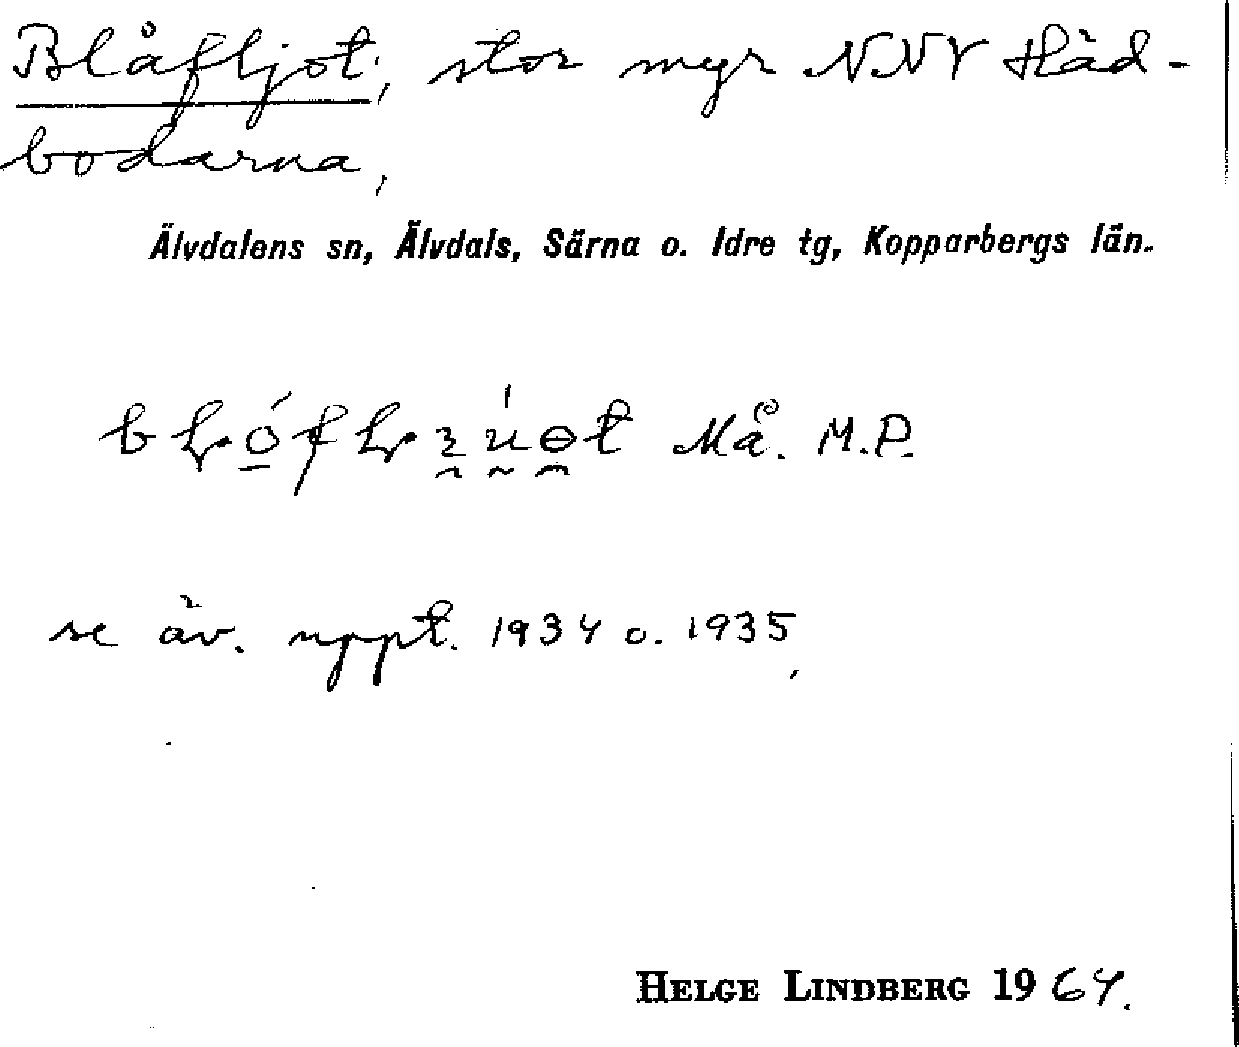 Blåfljot, stor myr NNV Häd-
bodarna,
Älvdalens sn, Älvdals, Särna o. Idre tg, Kopparbergs län.
Må. M.P.
se äv. uppt. 1934 o. 1935,
HELGE LINDBERG 1964.